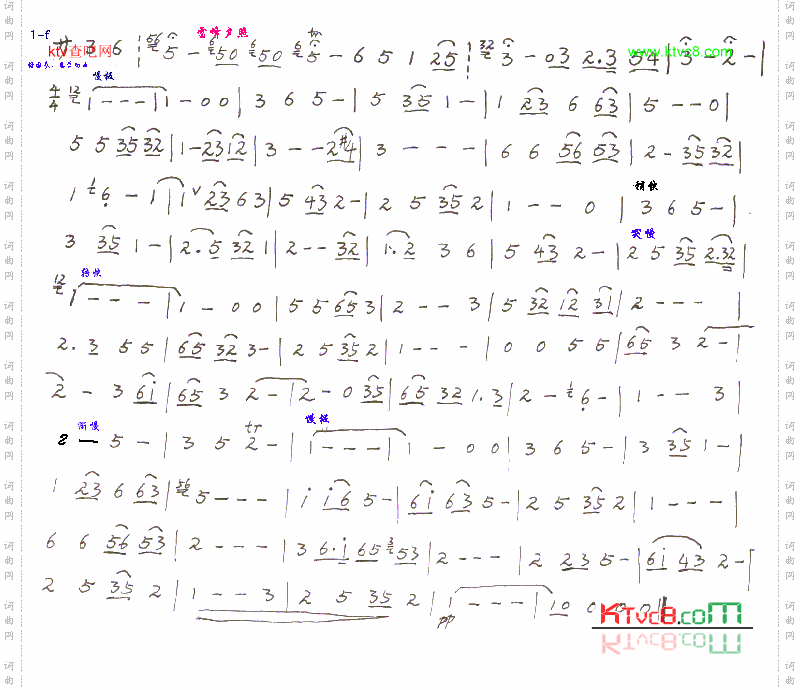 雪峰夕照
1=f ktv查吧网 www.ktvc8.com
サ 3 6 5 - 650 650 5 - 6 5 1 25 3 - 03 2.3 54 | 3 - 2 - |
慢板
4/4 1 - - - | 1 - 0 0 | 3 6 5 - | 5 35 1 - | 1 23 6 63 | 5 - - 0 |
5 5 35 32 | 1 - 23 12 | 3 - - 2#4 | 3 - - - | 6 6 56 53 | 2 - 35 32 |
稍快
1 6 - 1 | 1 ∨ 23 6 3 | 5 43 2 - | 2 5 35 2 | 1 - - 0 | 3 6 5 - |
突慢
3 35 1 - | 2. 5 32 1 | 2 - - 32 | 1. 2 3 6 | 5 43 2 - | 2 5 35 2.32 |
稍快
1 - - - | 1 - 0 0 | 5 5 65 3 | 2 - - 3 | 5 32 12 31 | 2 - - - |
2. 3 5 5 | 65 32 3 - | 2 5 35 2 | 1 - - - | 0 0 5 5 | 65 3 2 - |
2 - 3 6i | 65 3 2 - | 2 - 0 35 | 65 32 1.3 | 2 - 6 - | 1 - - 3 |
渐慢 慢板
2 - 5 - | 3 5 tr 2 - | 1 - - - | 1 - 0 0 | 3 6 5 - | 3 35 1 - |
1 23 6 63 | 5 - - - | i i6 5 - | 6i 63 5 - | 2 5 35 2 | 1 - - - |
6 6 56 53 | 2 - - - | 3 6.i 65 53 | 2 - - - | 2 23 5 - | 6i 43 2 - |
2 5 35 2 | 1 - - 3 | 2 5 35 2 | 1 - - - | 10 0 0 0 ‖
pp
KTvc8.com
词曲网